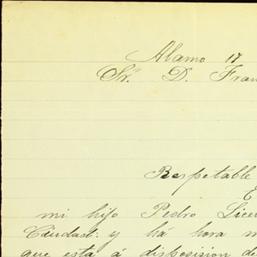 Alamo 17
Sr. D. Fran
Respetable
E
mi hijo Pedro Licen
Ciudad: y há hora m
que está á disposision de